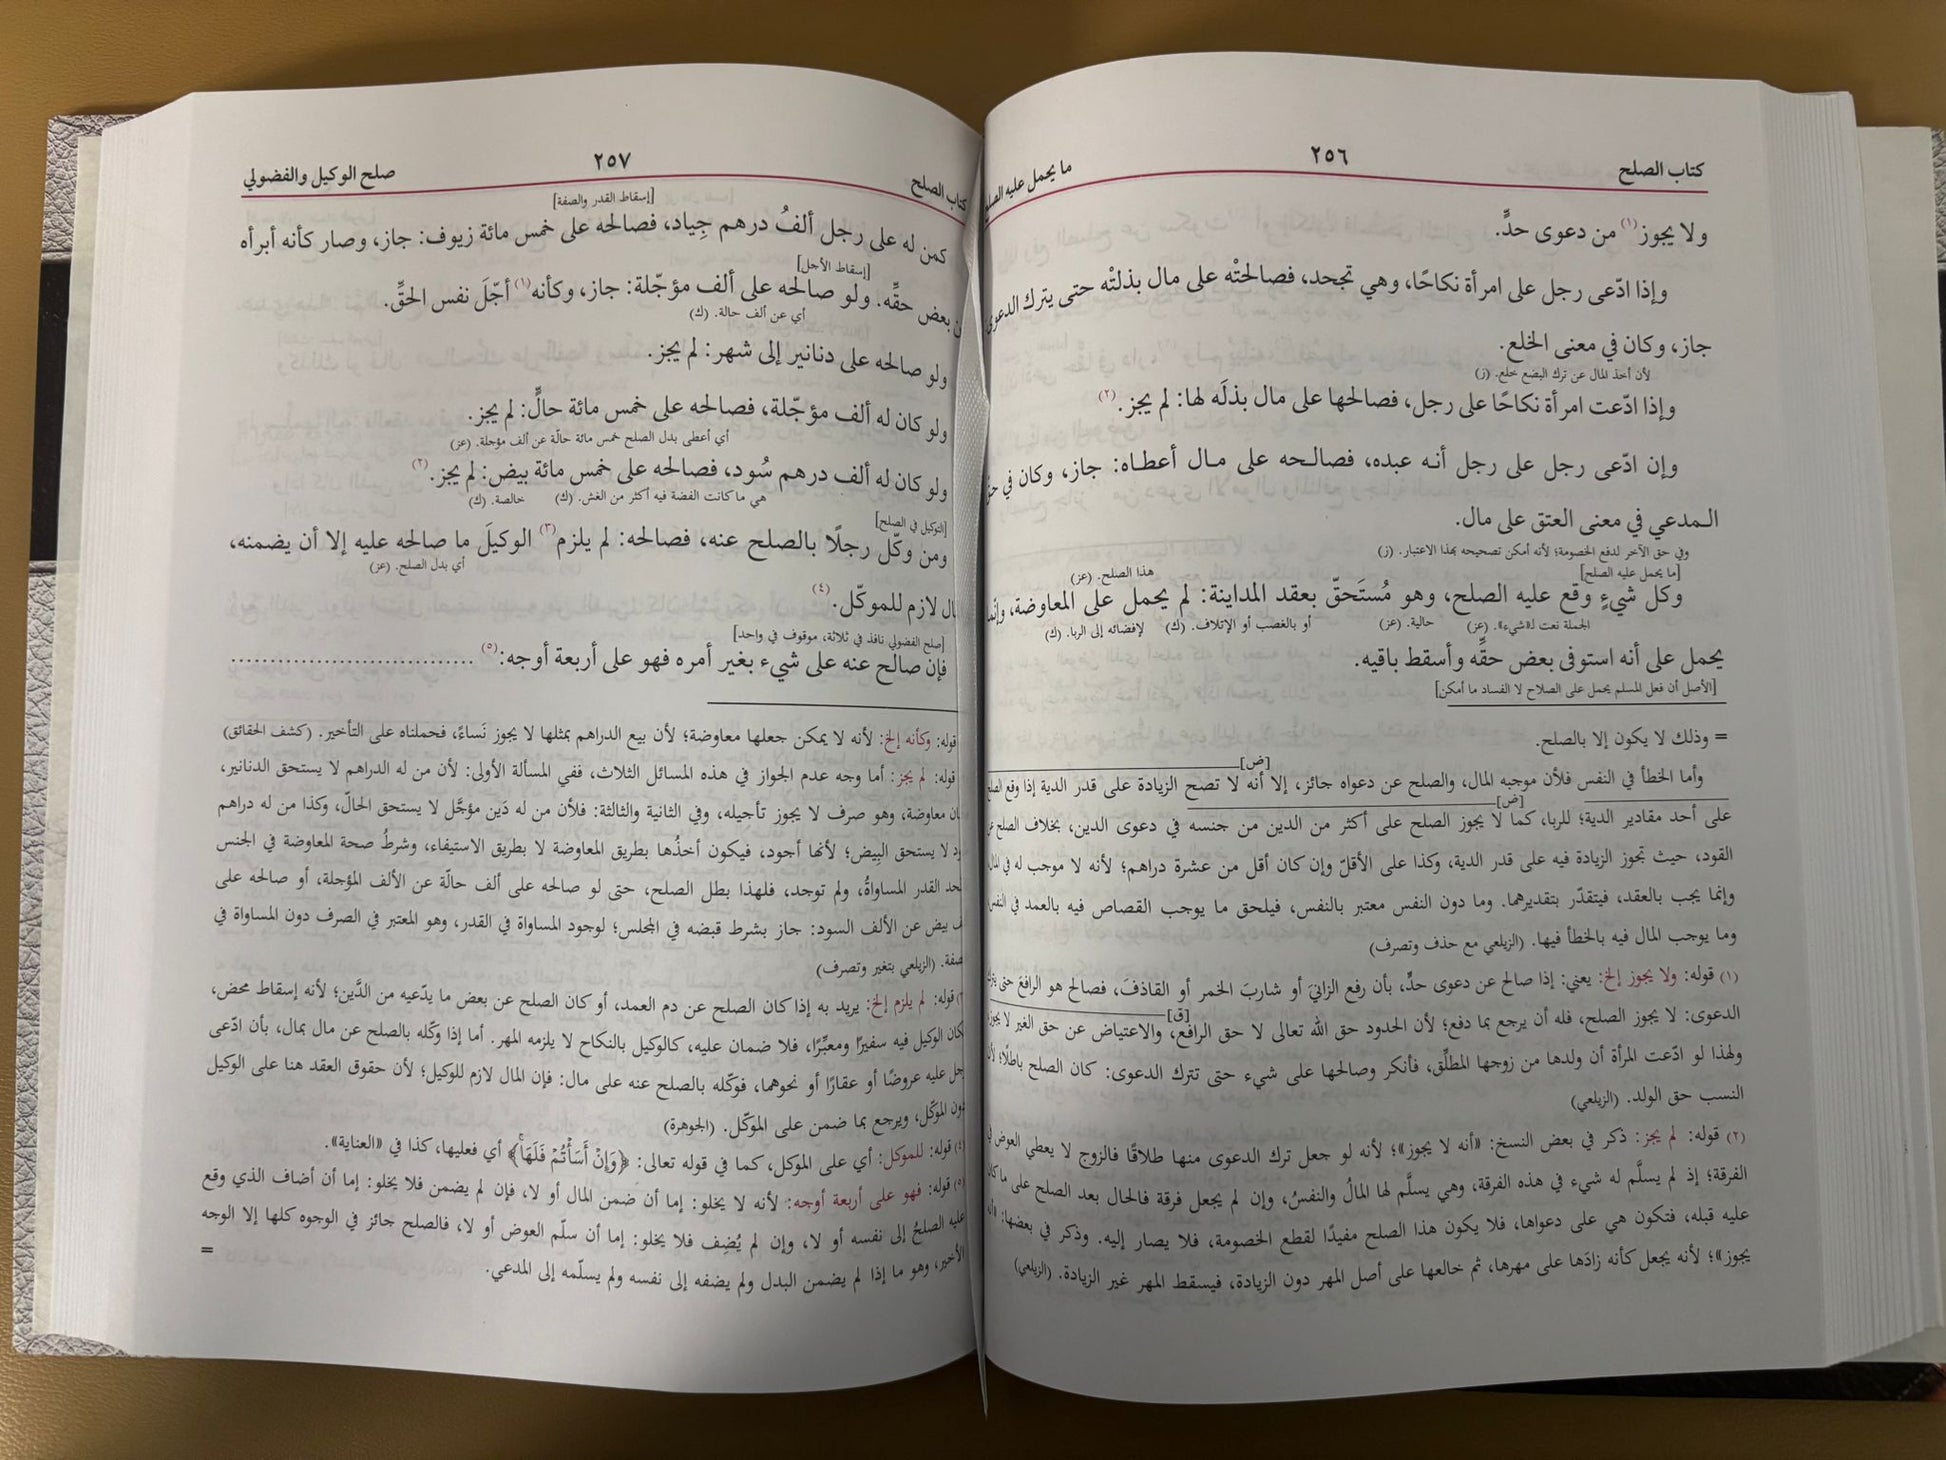 كتاب الصلح
٢٥٦
ما يحمل عليه الصلح
ولا يجوز(١) من دعوى حدٍّ.
وإذا ادّعى رجل على امرأة نكاحًا، وهي تجحد، فصالحتْه على مال بذلتْه حتى يترك الدعوى:
جاز، وكان في معنى الخلع.
لأن أخذ المال عن ترك البضع خلع. (ز)
وإذا ادّعت امرأة نكاحًا على رجل، فصالحها على مال بذلَه لها: لم يجز.(٢)
وإن ادّعى رجل على رجل أنه عبده، فصالحه على مال أعطاه: جاز، وكان في حقّ
المدعي في معنى العتق على مال.
وفي حق الآخر لدفع الخصومة؛ لأنه أمكن تصحيحه بهذا الاعتبار. (ز)
[ما يحمل عليه الصلح] هذا الصلح. (عز)
وكل شيءٍ وقع عليه الصلح، وهو مُستَحقّ بعقد المداينة: لم يحمل على المعاوضة، وإنّما
الجملة نعت لـ«شيء». (عز) حالية. (عز) أو بالغصب أو الإتلاف. (ك) لإفضائه إلى الربا. (ك)
يحمل على أنه استوفى بعض حقِّه وأسقط باقيه.
[الأصل أن فعل المسلم يحمل على الصلاح لا الفساد ما أمكن]
= وذلك لا يكون إلا بالصلح.
[ض]
وأما الخطأ في النفس فلأن موجبه المال، والصلح عن دعواه جائز، إلا أنه لا تصح الزيادة على قدر الدية إذا وقع الصلح
[ض]
على أحد مقادير الدية؛ للربا، كما لا يجوز الصلح على أكثر من الدين من جنسه في دعوى الدين، بخلاف الصلح عن
القود، حيث تجوز الزيادة فيه على قدر الدية، وكذا على الأقلّ وإن كان أقل من عشرة دراهم؛ لأنه لا موجب له في المال
وإنما يجب بالعقد، فيتقدّر بتقديرهما. وما دون النفس معتبر بالنفس، فيلحق ما يوجب القصاص فيه بالعمد في النفس
وما يوجب المال فيه بالخطأ فيها. (الزيلعي مع حذف وتصرف)
(١) قوله: ولا يجوز إلخ: يعني: إذا صالح عن دعوى حدٍّ، بأن رفع الزانيَ أو شاربَ الخمر أو القاذفَ، فصالح هو الرافعَ حتى يترك
[ق]
الدعوى: لا يجوز الصلح، فله أن يرجع بما دفع؛ لأن الحدود حق الله تعالى لا حق الرافع، والاعتياض عن حق الغير لا يجوز
ولهذا لو ادّعت المرأة أن ولدها من زوجها المطلِّق، فأنكر وصالحها على شيء حتى تترك الدعوى: كان الصلح باطلًا؛ لأن
النسب حق الولد. (الزيلعي)
(٢) قوله: لم يجز: ذكر في بعض النسخ: «أنه لا يجوز»؛ لأنه لو جعل ترك الدعوى منها طلاقًا فالزوج لا يعطي العوض في
الفرقة؛ إذ لم يسلَّم له شيء في هذه الفرقة، وهي يسلَّم لها المالُ والنفسُ، وإن لم يجعل فرقة فالحال بعد الصلح على ما كان
عليه قبله، فتكون هي على دعواها، فلا يكون هذا الصلح مفيدًا لقطع الخصومة، فلا يصار إليه. وذكر في بعضها: «أنه
يجوز»؛ لأنه يجعل كأنه زادَها على مهرها، ثم خالعها على أصل المهر دون الزيادة، فيسقط المهر غير الزيادة. (الزيلعي)
كتاب الصلح
٢٥٧
صلح الوكيل والفضولي
[إسقاط القدر والصفة]
كمن له على رجل ألفُ درهم جِياد، فصالحه على خمس مائة زيوف: جاز، وصار كأنه أبرأه
[إسقاط الأجل]
بعض حقِّه. ولو صالحه على ألف مؤجّلة: جاز، وكأنه(١) أجّلَ نفس الحقِّ.
أي عن ألف حالة. (ك)
ولو صالحه على دنانير إلى شهر: لم يجز.
ولو كان له ألف مؤجّلة، فصالحه على خمس مائة حالٍّ: لم يجز.
أي أعطى بدل الصلح خمس مائة حالّة عن ألف مؤجلة. (عز)
ولو كان له ألف درهم سُود، فصالحه على خمس مائة بيض: لم يجز.(٢)
هي ما كانت الفضة فيه أكثر من الغش. (ك) خالصة. (ك)
[التوكيل في الصلح]
ومن وكّل رجلًا بالصلح عنه، فصالحه: لم يلزم(٣) الوكيلَ ما صالحه عليه إلا أن يضمنه،
أي بدل الصلح. (عز)
لازم للموكّل.(٤)
[صلح الفضولي نافذ في ثلاثة، موقوف في واحد]
فإن صالح عنه على شيء بغير أمره فهو على أربعة أوجه:(٥) ..............................
قوله: وكأنه إلخ: لأنه لا يمكن جعلها معاوضة؛ لأن بيع الدراهم بمثلها لا يجوز نَساءً، فحملناه على التأخير. (كشف الحقائق)
قوله: لم يجز: أما وجه عدم الجواز في هذه المسائل الثلاث، ففي المسألة الأولى: لأن من له الدراهم لا يستحق الدنانير،
معاوضة، وهو صرف لا يجوز تأجيله، وفي الثانية والثالثة: فلأن من له دَين مؤجَّل لا يستحق الحالّ، وكذا من له دراهم
لا يستحق البِيض؛ لأنها أجود، فيكون أخذُها بطريق المعاوضة لا بطريق الاستيفاء، وشرطُ صحة المعاوضة في الجنس
القدر المساواةُ، ولم توجد، فلهذا بطل الصلح، حتى لو صالحه على ألف حالّة عن الألف المؤجلة، أو صالحه على
بيض عن الألف السود: جاز بشرط قبضه في المجلس؛ لوجود المساواة في القدر، وهو المعتبر في الصرف دون المساواة في
الصفة. (الزيلعي بتغير وتصرف)
(٣) قوله: لم يلزم إلخ: يريد به إذا كان الصلح عن دم العمد، أو كان الصلح عن بعض ما يدّعيه من الدَّين؛ لأنه إسقاط محض،
فكان الوكيل فيه سفيرًا ومعبِّرًا، فلا ضمان عليه، كالوكيل بالنكاح لا يلزمه المهر. أما إذا وكّله بالصلح عن مال بمال، بأن ادّعى
رجل عليه عروضًا أو عقارًا أو نحوهما، فوكّله بالصلح عنه على مال: فإن المال لازم للوكيل؛ لأن حقوق العقد هنا على الوكيل
دون الموكّل، ويرجع بما ضمن على الموكّل. (الجوهرة)
(٤) قوله: للموكل: أي على الموكل، كما في قوله تعالى: ﴿وَإِنْ أَسَأْتُمْ فَلَهَا﴾ أي فعليها، كذا في «العناية».
(٥) قوله: فهو على أربعة أوجه: لأنه لا يخلو: إما أن ضمن المال أو لا، فإن لم يضمن فلا يخلو: إما أن أضاف الذي وقع
عليه الصلحُ إلى نفسه أو لا، وإن لم يُضِف فلا يخلو: إما أن سلّم العوض أو لا، فالصلح جائز في الوجوه كلها إلا الوجه
الأخير، وهو ما إذا لم يضمن البدل ولم يضفه إلى نفسه ولم يسلّمه إلى المدعي. =